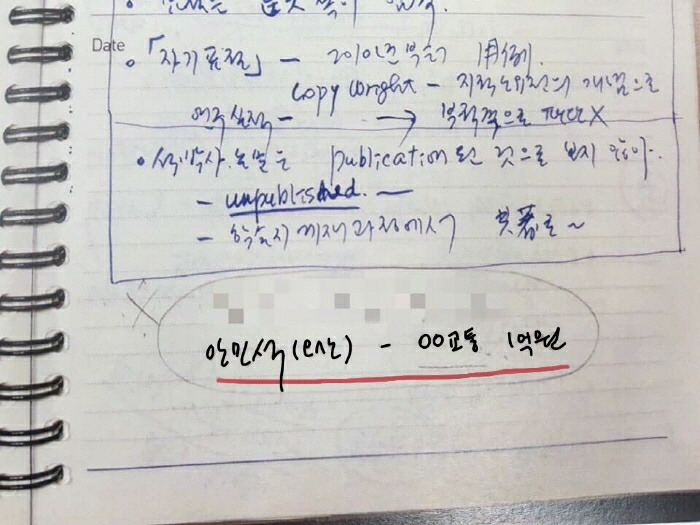 Date
• 「자기표절」 – 2010년부터 用例.
copy wright – 지적소유권의 개념으로
연구실적 – → 부정적으로 판단 X
• 석박사 논문은 publication된 것으로 보지 않아.
– unpublished. –
– 학술지 게재과정에서 共著로 ~
안민석(오산) – 00교통 1억원